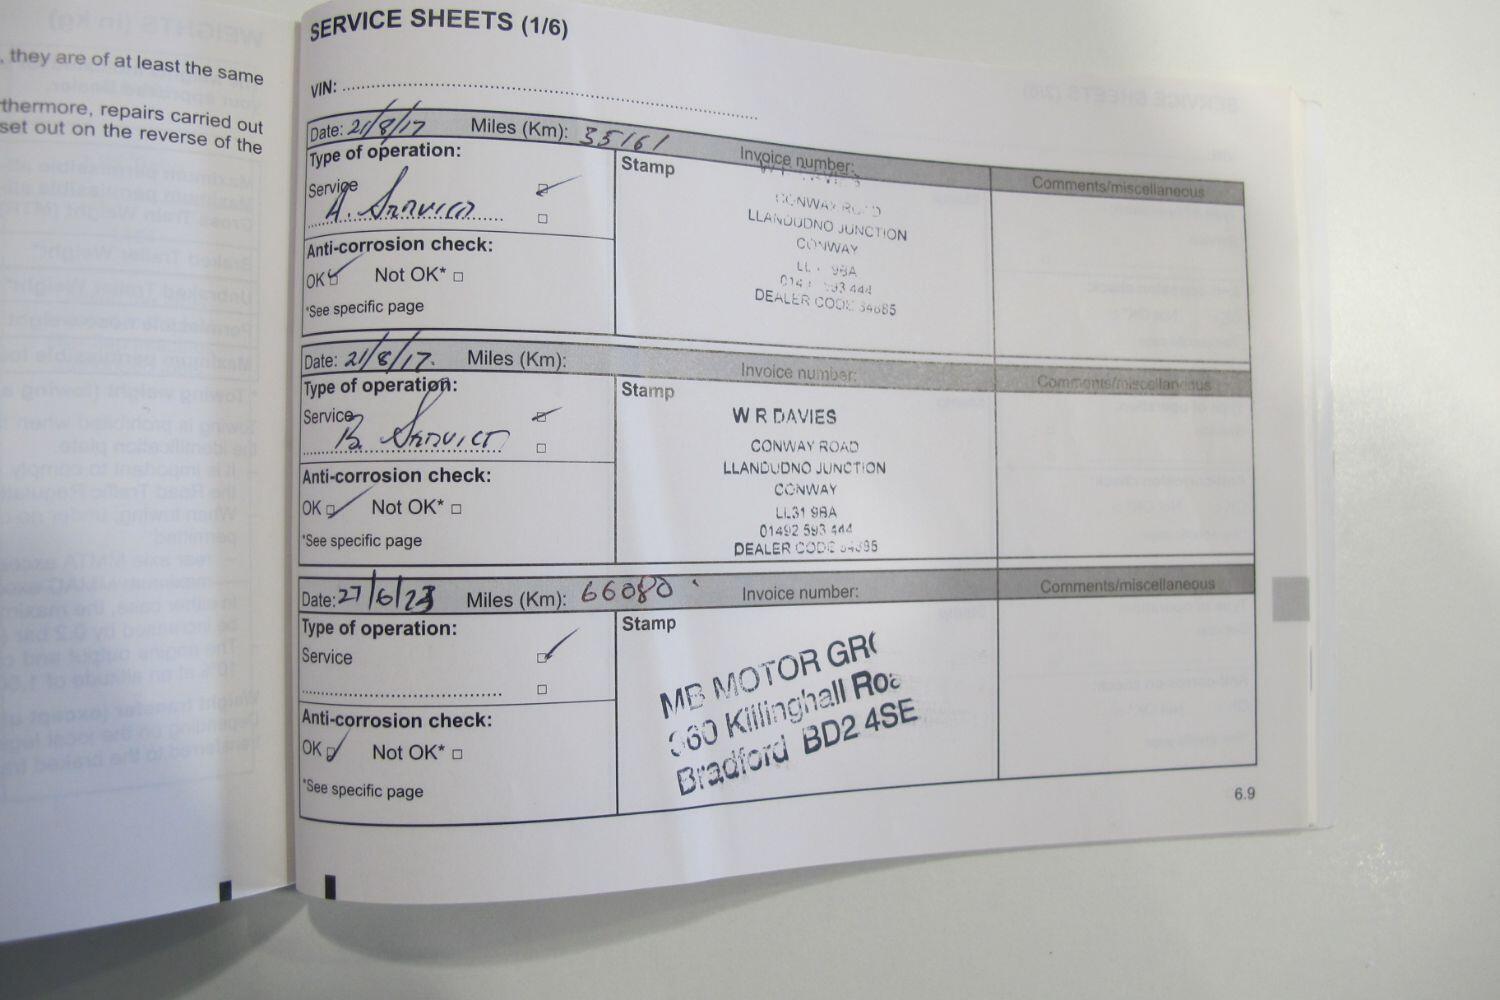 , they are of at least the same
thermore, repairs carried out
set out on the reverse of the
SERVICE SHEETS (1/6)
VIN:
Date: 21/8/17 Miles (Km): 35161 Invoice number: Comments/miscellaneous
Type of operation:
Service
A. Service
Anti-corrosion check:
OK Not OK*
*See specific page
Stamp
CONWAY ROAD
LLANDUDNO JUNCTION
CONWAY
9BA
593 444
DEALER CODE
Date: 21/8/17. Miles (Km): Invoice number: Comments/miscellaneous
Type of operation:
Service
B. Service
Anti-corrosion check:
OK Not OK*
*See specific page
Stamp
W R DAVIES
CONWAY ROAD
LLANDUDNO JUNCTION
CONWAY
LL31 9BA
01492 593 444
DEALER CODE
Date: 27/6/23 Miles (Km): 66080 Invoice number: Comments/miscellaneous
Type of operation:
Service
Anti-corrosion check:
OK Not OK*
*See specific page
Stamp
MB MOTOR GRO
360 Killinghall Roa
Bradford BD2 4SE
6.9